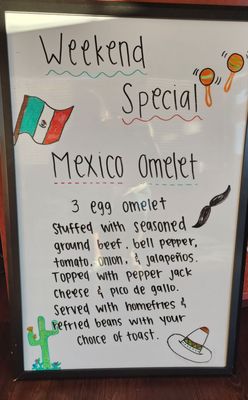 Weekend
Special
Mexico Omelet
3 egg omelet
Stuffed with seasoned
ground beef, bell pepper,
tomato, onion, & jalapeños.
Topped with pepper jack
cheese & pico de gallo.
Served with homefries &
refried beans with your
choice of toast.